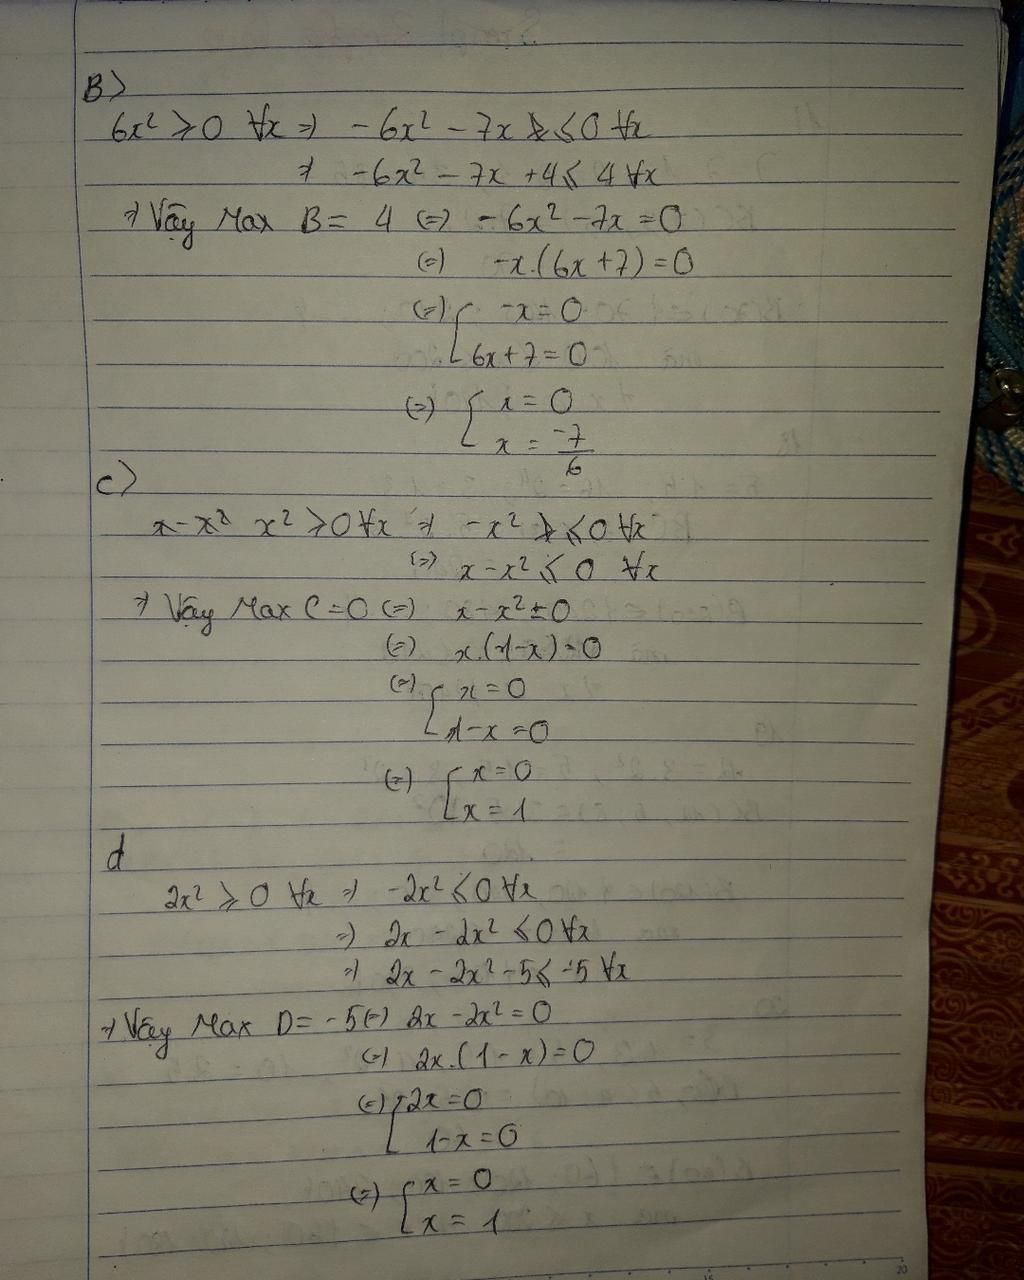 B)
6x² ⩾ 0 ∀x => -6x² - 7x ⩽ 0 ∀x
=> -6x² - 7x + 4 ⩽ 4 ∀x
=> Vậy Max B = 4 (=) -6x² - 7x = 0
(=) -x.(6x + 7) = 0
(=) [ -x = 0
6x + 7 = 0
(=) [ x = 0
x = -7/6
c)
x - x² x² ⩾ 0 ∀x => -x² ⩽ 0 ∀x
(=) x - x² ⩽ 0 ∀x
=> Vậy Max C = 0 (=) x - x² = 0
(=) x.(1 - x) = 0
(=) [ x = 0
1 - x = 0
(=) [ x = 0
x = 1
d
2x² ⩾ 0 ∀x => -2x² ⩽ 0 ∀x
=> 2x - 2x² ⩽ 0 ∀x
=> 2x - 2x² - 5 ⩽ -5 ∀x
=> Vậy Max D = -5 (=) 2x - 2x² = 0
(=) 2x.(1 - x) = 0
(=) [ 2x = 0
1 - x = 0
(=) [ x = 0
x = 1